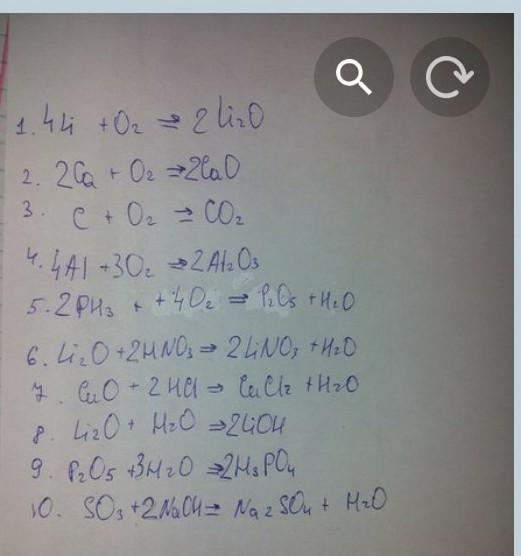 1. 4Li + O₂ ⇒ 2Li₂O
2. 2Ca + O₂ ⇒ 2CaO
3. C + O₂ ⇒ CO₂
4. 4Al + 3O₂ ⇒ 2Al₂O₃
5. 2PH₃ + + 4O₂ ⇒ P₂O₅ + H₂O
6. Li₂O + 2HNO₃ ⇒ 2LiNO₃ + H₂O
7. CuO + 2HCl ⇒ CuCl₂ + H₂O
8. Li₂O + H₂O ⇒ 2LiOH
9. P₂O₅ + 3H₂O ⇒ 2H₃PO₄
10. SO₃ + 2NaOH ⇒ Na₂SO₄ + H₂O